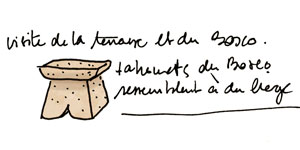 visite de la terrasse et du Bosco.
tabourets du Bosco
ressemblent à du liège